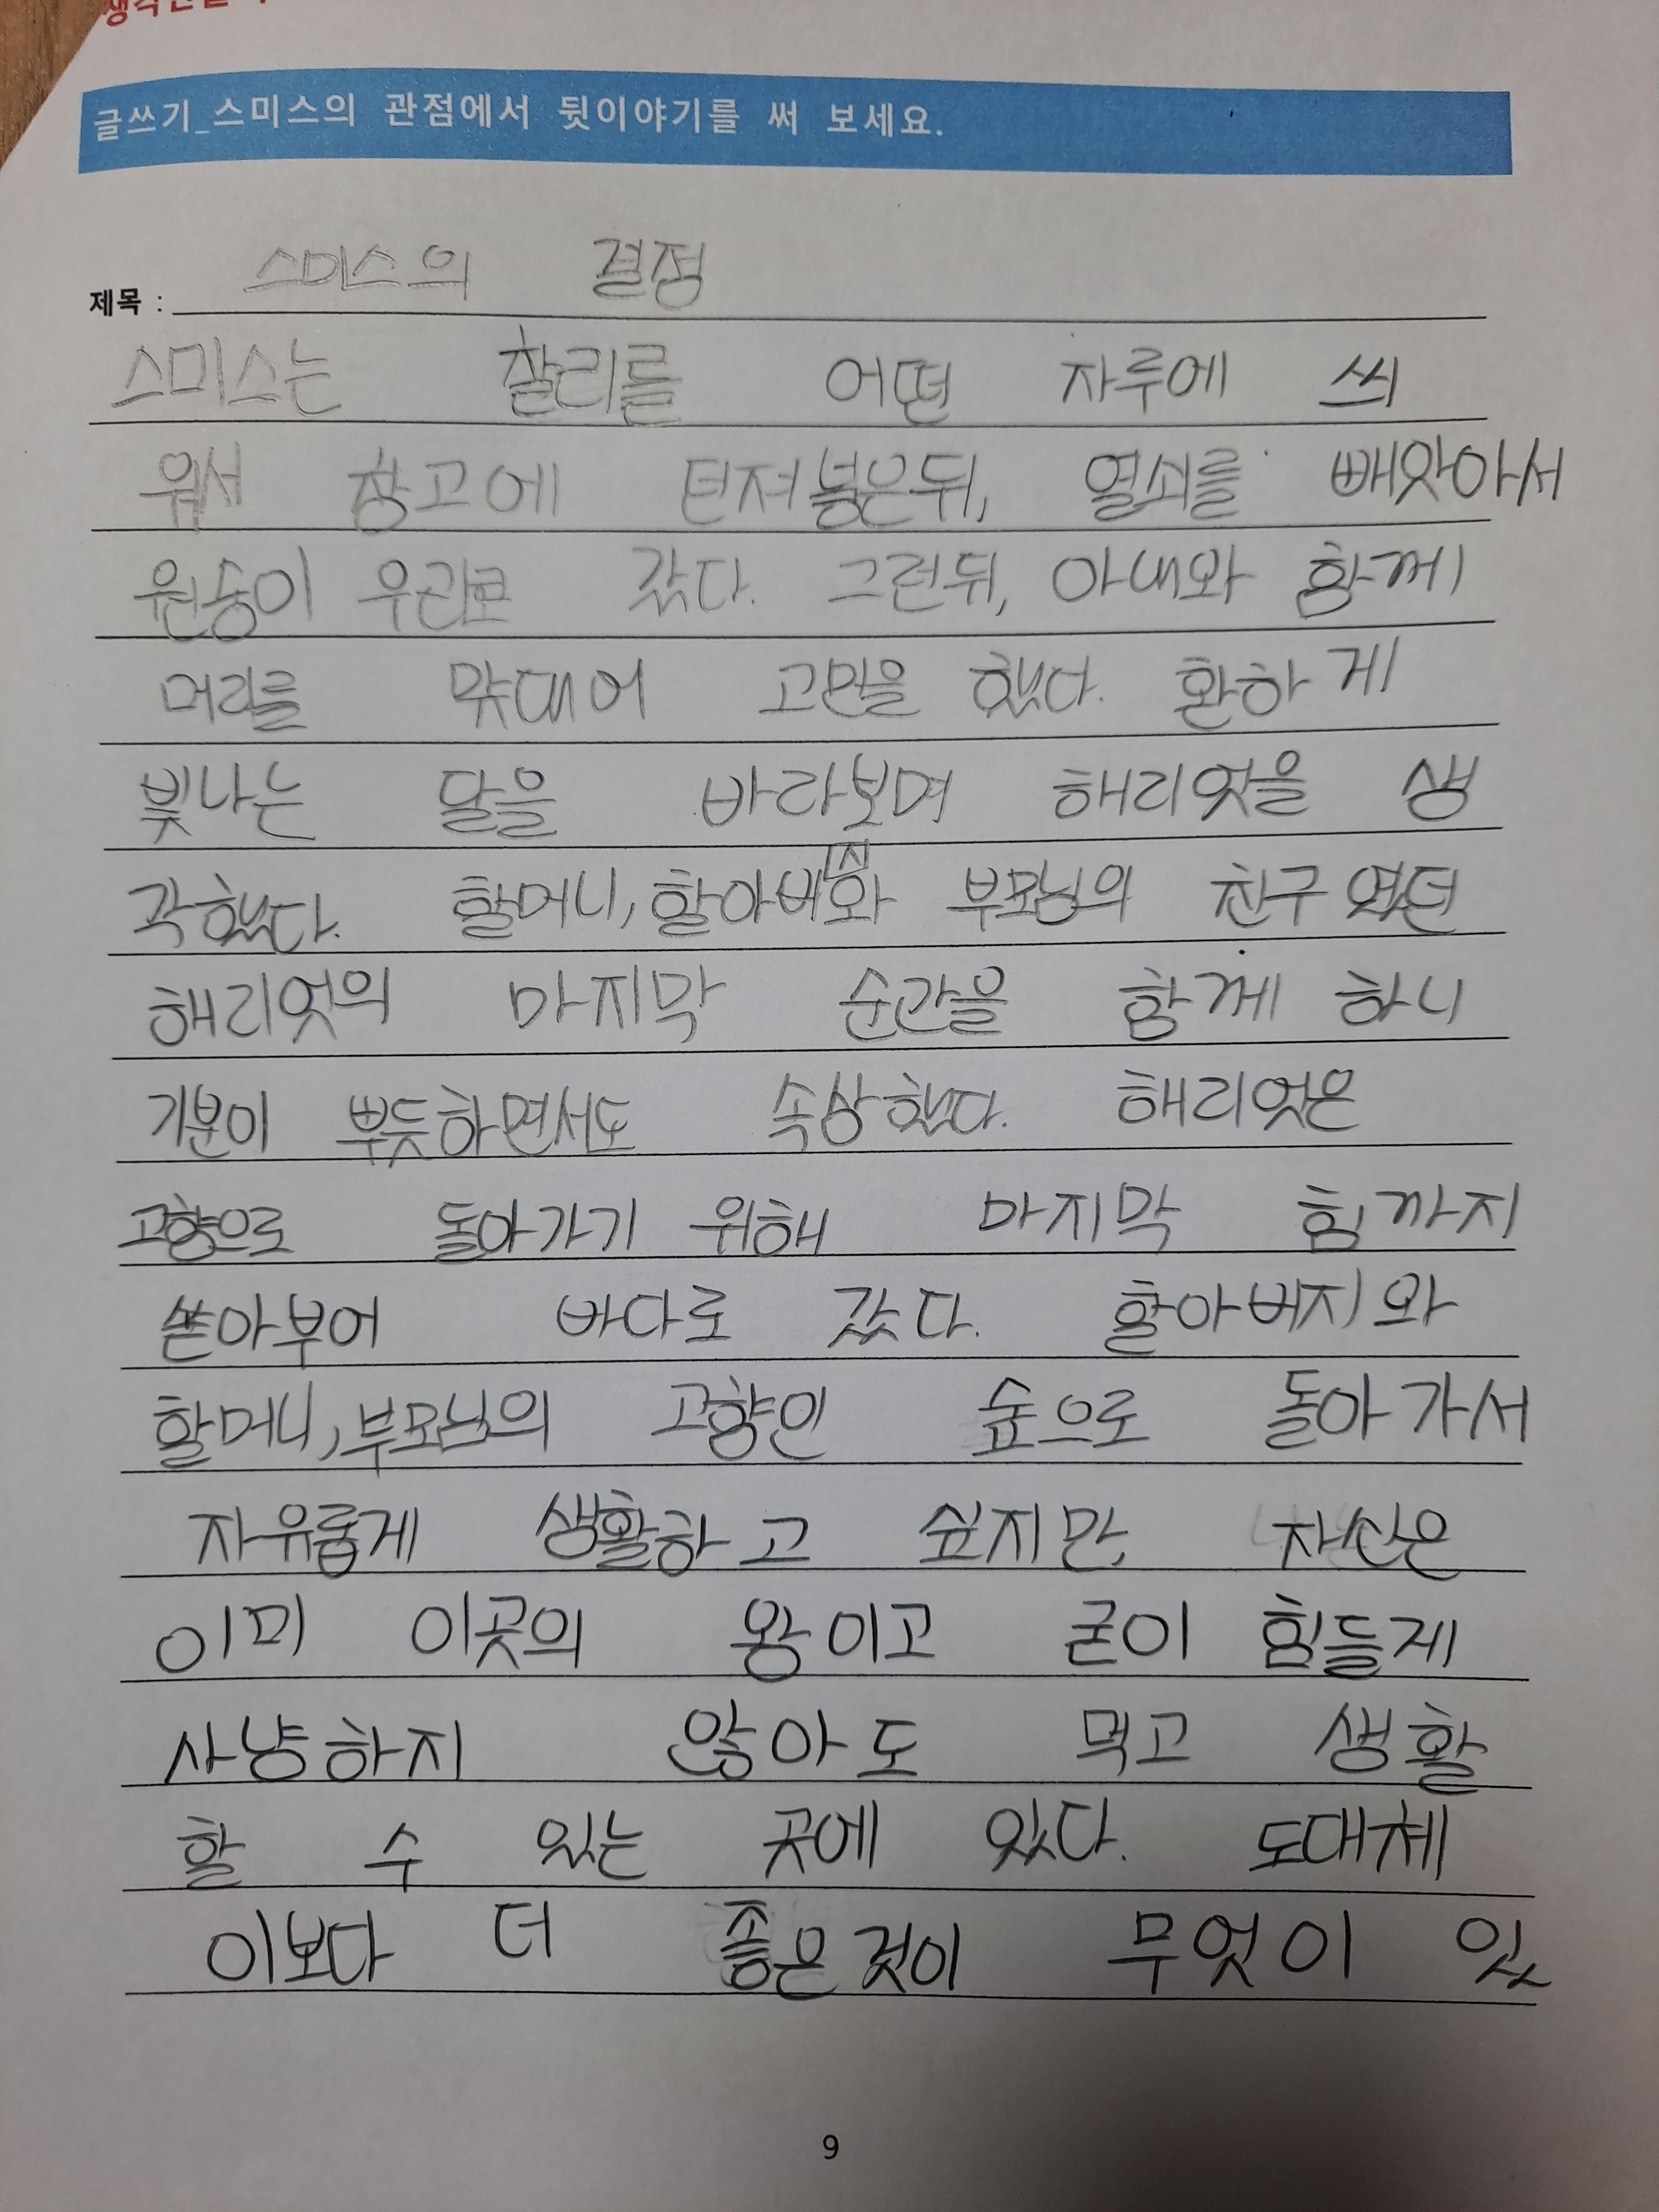 글쓰기_스미스의 관점에서 뒷이야기를 써 보세요.
제목 : 스미스의 결정
스미스는 찰리를 어떤 자루에 씌
워서 창고에 던져 넣은뒤, 열쇠를 빼앗아서
원숭이 우리로 갔다. 그런뒤, 아내와 함께
머리를 맞대어 고민을 했다. 환하게
빛나는 달을 바라보며 해리엇을 생
각했다. 할머니, 할아버지와 부모님의 친구였던
해리엇의 마지막 순간을 함께 하니
기분이 뿌듯하면서도 속상했다. 해리엇은
고향으로 돌아가기 위해 마지막 힘까지
쏟아부어 바다로 갔다. 할아버지와
할머니, 부모님의 고향인 숲으로 돌아가서
자유롭게 생활하고 싶지만, 자신은
이미 이곳의 왕이고 굳이 힘들게
사냥하지 않아도 먹고 생활
할 수 있는 곳에 있다. 도대체
이보다 더 좋은것이 무엇이 있
9